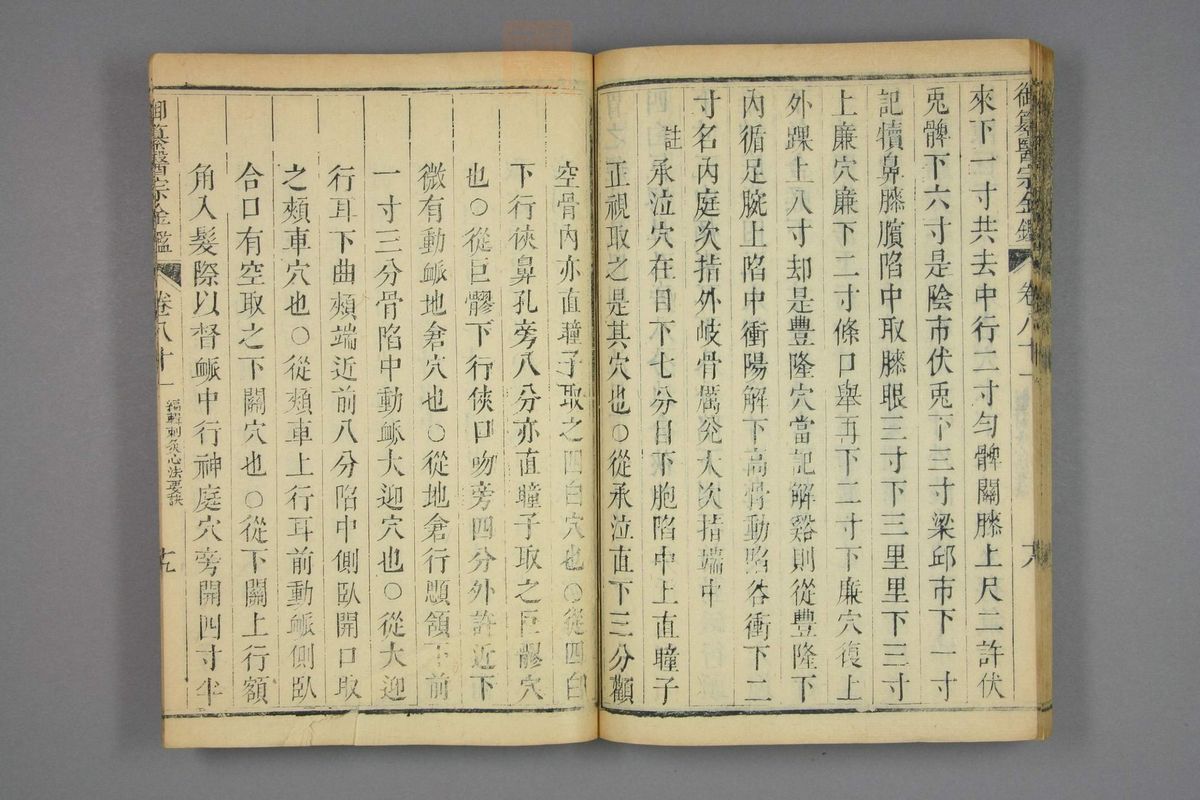 御纂醫宗金鑑 卷八十一 十八
來下一寸共去中行二寸勻髀關膝上尺二許伏
兎髀下六寸是陰市伏兎下三寸梁邱市下一寸
記犢鼻膝臏陷中取膝眼三寸下三里里下三寸
上廉穴廉下二寸條口舉再下二寸下廉穴復上
外踝上八寸却是豐隆穴當記解谿則從豐隆下
內循足腕上陷中衝陽解下高骨動陷谷衝下二
寸名內庭次指外岐骨厲兊大次指端中
註承泣穴在目下七分目下胞陷中上直瞳子
正視取之是其穴也○從承泣直下三分顴
空骨內亦直瞳子取之四白穴也○從四白
下行俠鼻孔旁八分亦直瞳子取之巨髎穴
也○從巨髎下行俠口吻旁四分外許近下
微有動脈地倉穴也○從地倉行顋頷下前
一寸三分骨陷中動脈大迎穴也○從大迎
行耳下曲頰端近前八分陷中側臥開口取
之頰車穴也○從頰車上行耳前動脈側臥
合口有空取之下關穴也○從下關上行額
角入髮際以督脈中行神庭穴旁開四寸半
御纂醫宗金鑑 卷八十一 編輯刺灸心法要訣 十九